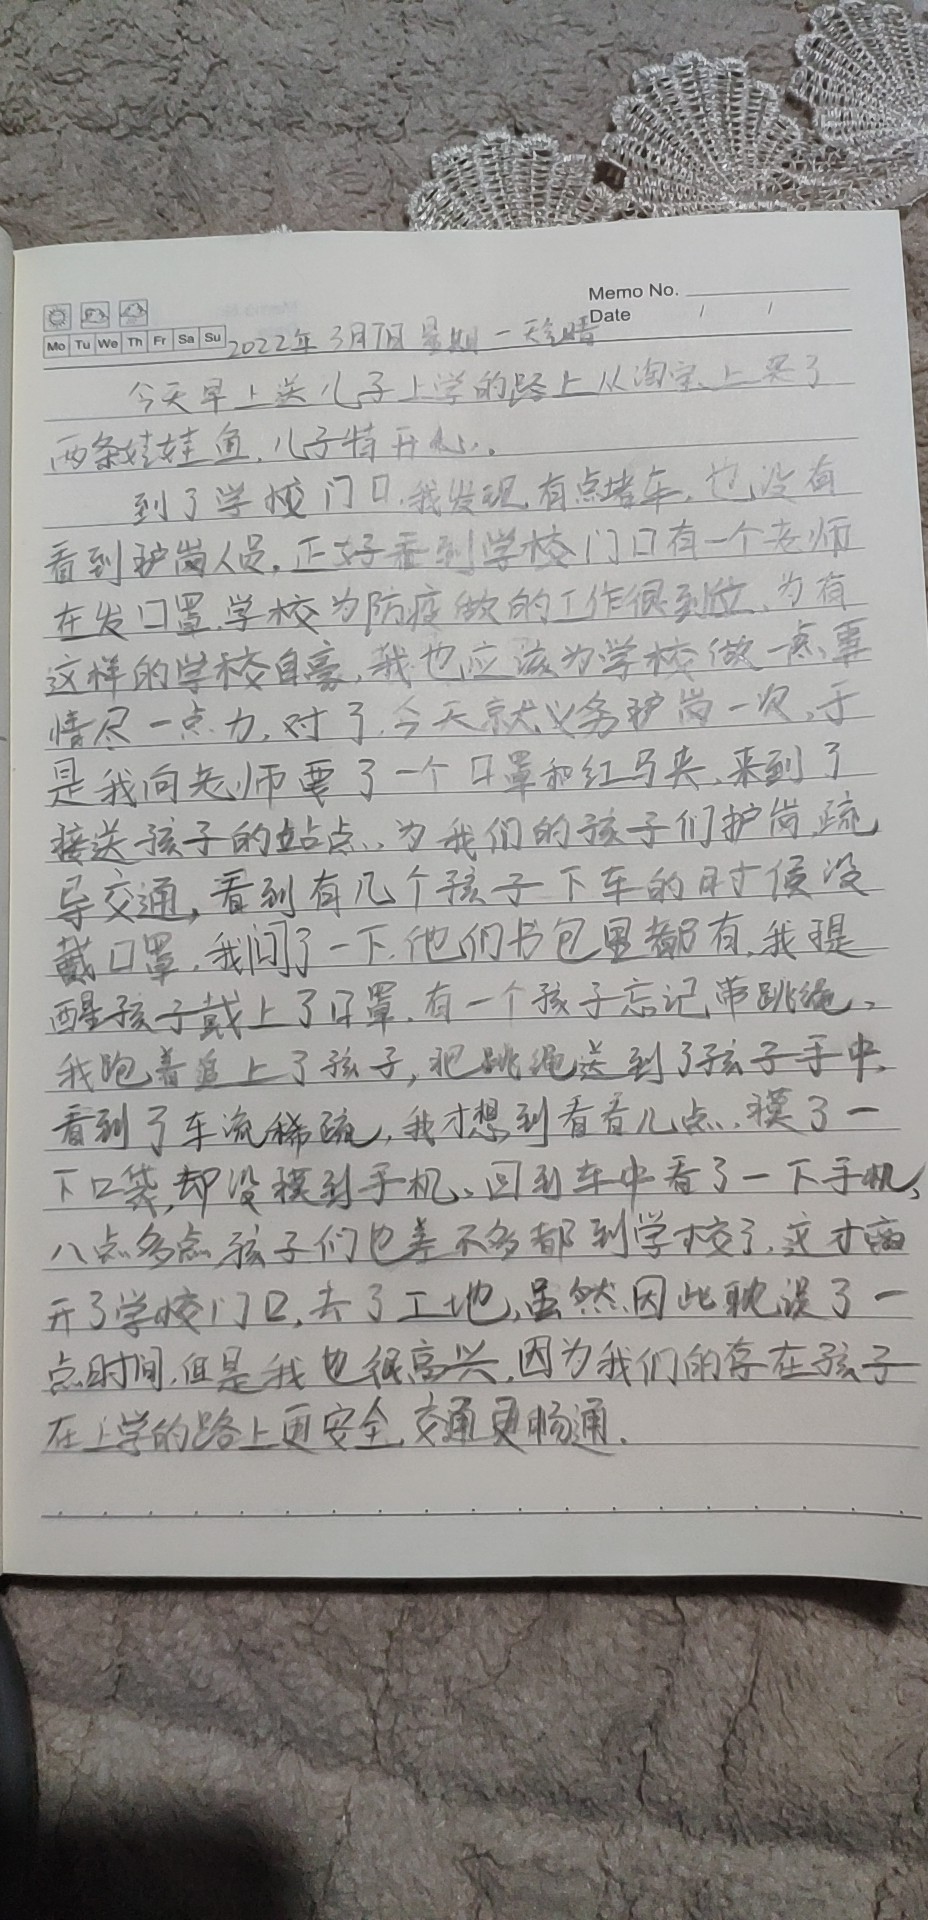 Memo No.
Date / /
Mo Tu We Th Fr Sa Su
2022年3月7日 星期一 天气晴
今天早上送儿子上学的路上从淘宝上买了
两条娃娃鱼,儿子特开心。
到了学校门口,我发现有点堵车,也没有
看到护岗人员,正好看到学校门口有一个老师
在发口罩,学校为防疫做的工作很到位,为有
这样的学校自豪,我也应该为学校做一点事
情尽一点力,对了,今天就义务护岗一次,于
是我向老师要了一个口罩和红马夹,来到了
接送孩子的站点,为我们的孩子们护岗,疏
导交通,看到有几个孩子下车的时候没
戴口罩,我问了一下,他们书包里都有,我提
醒孩子戴上了口罩,有一个孩子忘记带跳绳,
我跑着追上了孩子,把跳绳送到了孩子手中,
看到了车流稀疏,我才想到看看几点,摸了一
下口袋,却没摸到手机,回到车中看了一下手机,
八点多点孩子们也差不多都到学校了,这才离
开了学校门口,去了工地,虽然因此耽误了一
点时间,但是我也很高兴,因为我们的存在孩子
在上学的路上更安全,交通更畅通.